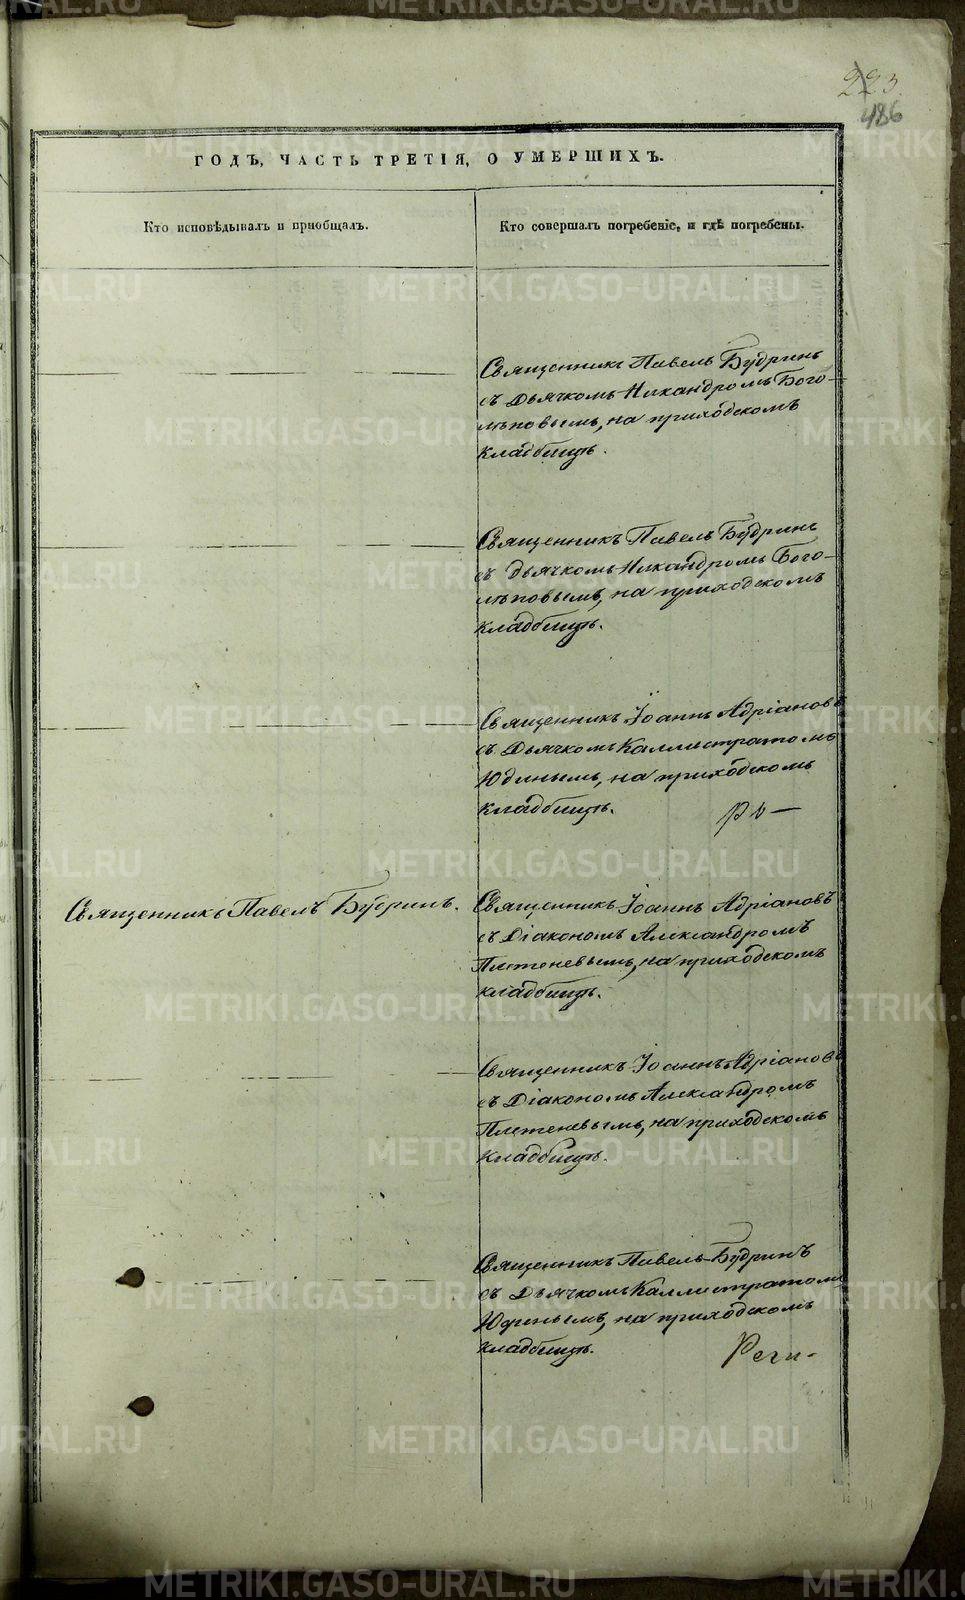 223.
486
ГОДЪ, ЧАСТЬ ТРЕТІЯ, О УМЕРШИХЪ.
Кто исповѣдывалъ и пріобщалъ.
Кто совершалъ погребеніе, и гдѣ погребены.
Священникъ Павелъ Будринъ
съ Дьячкомъ Никандромъ Бого-
лѣповымъ, на приходскомъ
кладбищѣ.
Священникъ Павелъ Будринъ
съ дьячкомъ Никандромъ Бого-
лѣповымъ, на приходскомъ
кладбищѣ.
Священникъ Іоаннъ Адріановъ
съ Дьячкомъ Каллистратомъ
Юдинымъ, на приходскомъ
кладбищѣ.
Священникъ Павелъ Будринъ.
Священникъ Іоаннъ Адріановъ
съ Діакономъ Александромъ
Плетеневымъ, на приходскомъ
кладбищѣ.
Священникъ Іоаннъ Адріановъ
съ Діакономъ Александромъ
Плетеневымъ, на приходскомъ
кладбищѣ.
Священникъ Павелъ Будринъ
съ Дьячкомъ Каллистратомъ
Юдинымъ, на приходскомъ
кладбищѣ.
METRIKI.GASO-URAL.RU